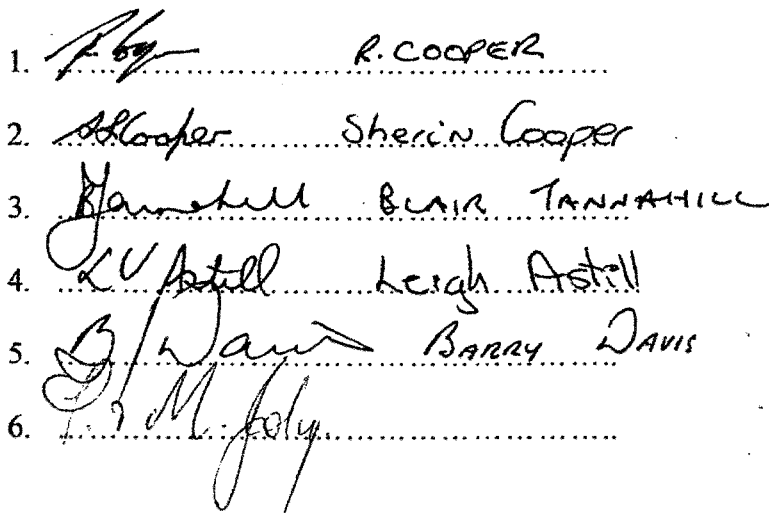 1. R. COOPER
2. SLCooper Sherin Cooper
3. BTannahill BLAIR TANNAHILL
4. LV Astill Leigh Astill
5. B Davis BARRY DAVIS
6. M.